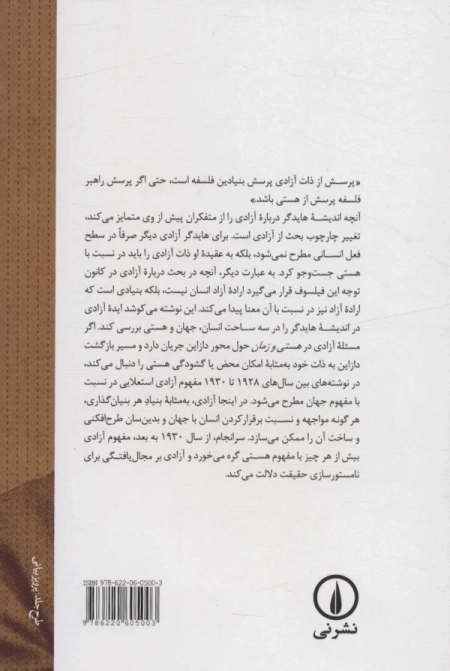 «پرسش از ذات آزادی پرسش بنیادین فلسفه است، حتی اگر پرسش راهبر
فلسفه پرسش از هستی باشد»
آنچه اندیشهٔ هایدگر دربارهٔ آزادی را از متفکران پیش از وی متمایز می‌کند،
تغییر چارچوب بحث از آزادی است. برای هایدگر آزادی دیگر صرفاً در سطح
فعل انسانی مطرح نمی‌شود، بلکه به عقیدهٔ او ذات آزادی را باید در نسبت با
هستی جست‌وجو کرد. به عبارت دیگر، آنچه در بحث دربارهٔ آزادی در کانون
توجه این فیلسوف قرار می‌گیرد ارادهٔ آزاد انسان نیست، بلکه بنیادی است که
ارادهٔ آزاد نیز در نسبت با آن معنا پیدا می‌کند. این نوشته می‌کوشد ایدهٔ آزادی
در اندیشهٔ هایدگر را در سه ساحت انسان، جهان و هستی بررسی کند. اگر
مسئلهٔ آزادی در هستی و زمان حول محور دازاین جریان دارد و مسیر بازگشت
دازاین به ذات خود به‌مثابهٔ امکان محض یا گشودگی هستی را دنبال می‌کند،
در نوشته‌های بین سال‌های ۱۹۲۸ تا ۱۹۳۰ مفهوم آزادی استعلایی در نسبت
با مفهوم جهان مطرح می‌شود. در اینجا آزادی، به‌مثابهٔ بنیادِ هر بنیان‌گذاری،
هر گونه مواجهه و نسبت برقرار کردن انسان با جهان و بدین‌سان طرح‌افکنی
و ساخت آن را ممکن می‌سازد. سرانجام، از سال ۱۹۳۰ به بعد، مفهوم آزادی
بیش از هر چیز با مفهوم هستی گره می‌خورد و آزادی بر مجال‌یافتگی برای
نامستورسازی حقیقت دلالت می‌کند.
ISBN 978-622-06-0500-3
9786220605003
نشرنی
طرح جلد: پرویز بیانی